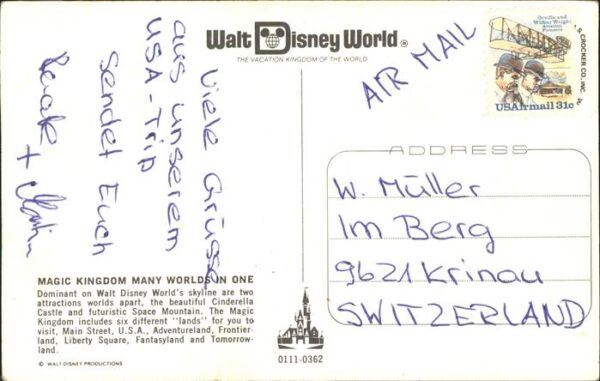 Walt Disney World®
THE VACATION KINGDOM OF THE WORLD
AIR MAIL
Orville and
Wilbur Wright
Aviation
Pioneers
USAirmail 31c
© CROCKER CO., INC.
Viele Grüsse
aus unserem
USA-Trip
sendet Euch
+ Martin
ADDRESS
W. Müller
Im Berg
9621 Krinau
SWITZERLAND
MAGIC KINGDOM MANY WORLDS IN ONE
Dominant on Walt Disney World's skyline are two
attractions worlds apart, the beautiful Cinderella
Castle and futuristic Space Mountain. The Magic
Kingdom includes six different "lands" for you to
visit, Main Street, U.S.A., Adventureland, Frontier-
land, Liberty Square, Fantasyland and Tomorrow-
land.
© WALT DISNEY PRODUCTIONS
0111-0362